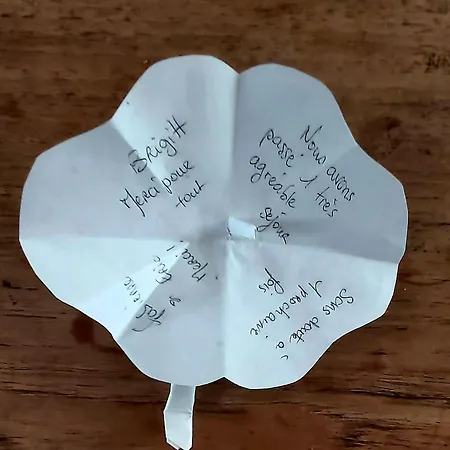 Brigitt
Merci pour
tout
Nous avons
passé 1 très
agréable
séjour
Sans doute à
1 prochaine
fois
Fabienne
& Eric
Merci !